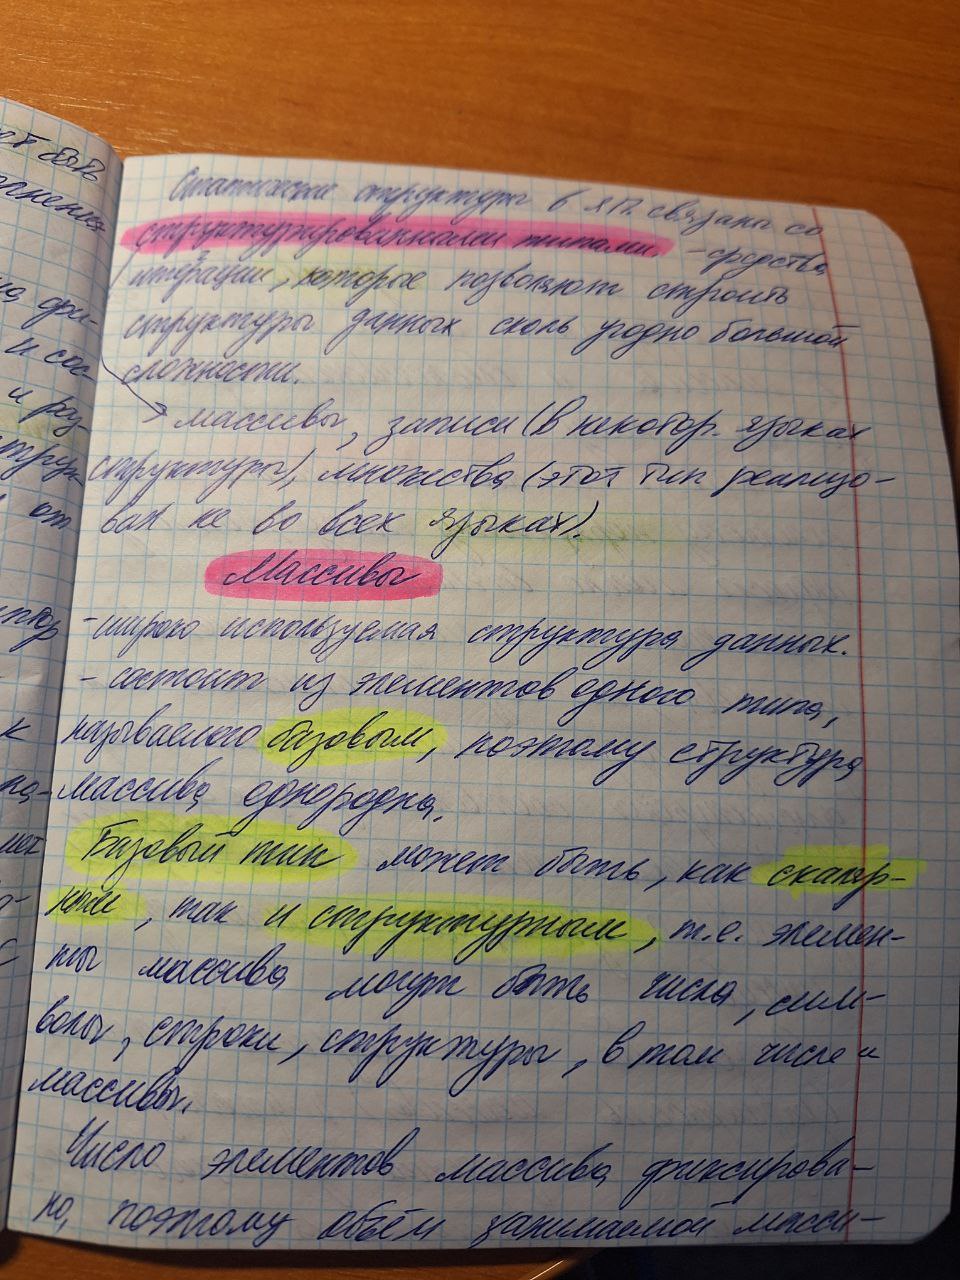 ет быть
Статические структуры в ЯП связаны со
структурированными типами, - средства
итерации, которые позволяют строить
структуры данных сколь угодно большой
сложности.
массивы, записи (в некотор. языках
структуры), множества (этот тип реализо-
ван не во всех языках).
Массивы
-широко используемая структура данных.
- состоит из элементов одного типа,
называемого базовым, поэтому структура
массива однородна.
Базовый тип может быть, как скаляр-
ным, так и структурным, т.е. элемен-
ты массива могут быть числа, сим-
волы, строки, структуры, в том числе и
массивы.
Число элементов массива фиксирова-
но, поэтому объём занимаемой масси-